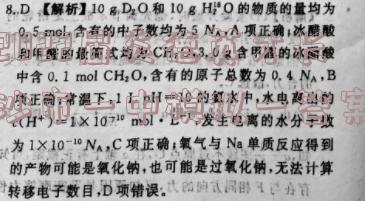 8. D 【解析】10 g D₂O和 10 g H₂¹⁸O 的物质的量均为
0.5 mol,含有的中子数均为 5 Nₐ,A 项正确;冰醋酸
和甲醛的最简式均为 CH₂O,3.0 g 含甲醛的冰醋酸
中含 0.1 mol CH₂O,含有的原子总数为 0.4 Nₐ,B
项正确;常温下,1 L pH= 的氨水中,水电离出的
c(H⁺)=1×10⁻¹⁰ mol·L⁻¹,发生电离的水分子数
为 1×10⁻¹⁰Nₐ,C 项正确;氧气与 Na 单质反应得到
的产物可能是氧化钠,也可能是过氧化钠,无法计算
转移电子数目,D 项错误。